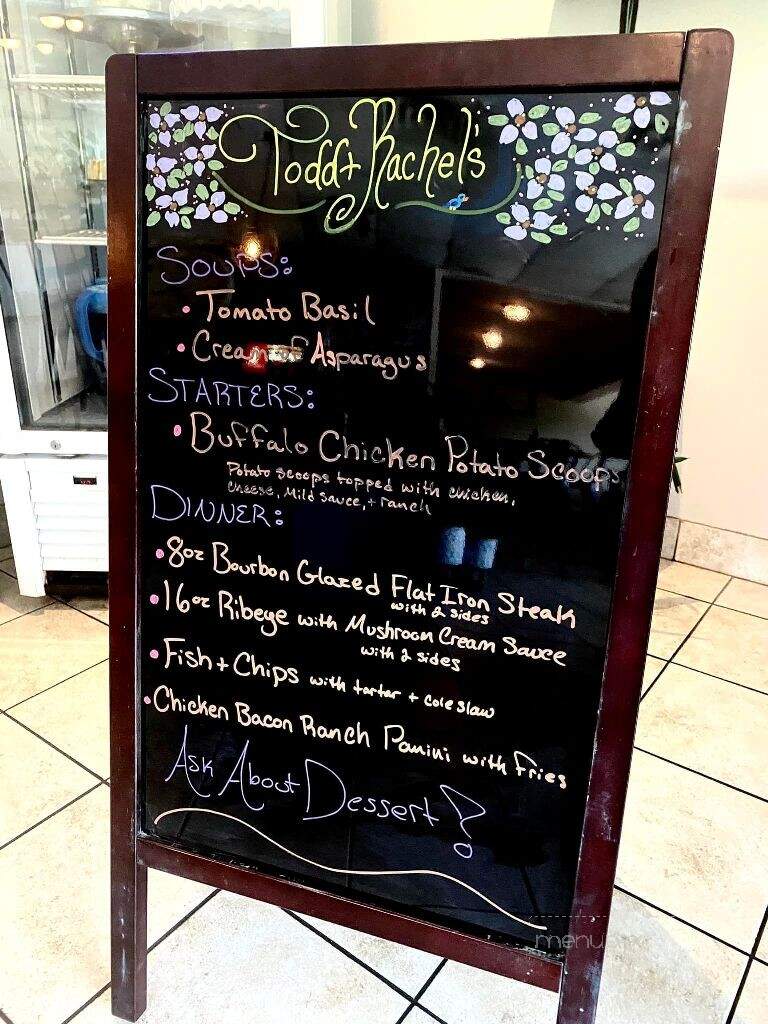 Todd + Rachel's
Soups:
• Tomato Basil
• Cream of Asparagus
Starters:
• Buffalo Chicken Potato Scoops
Potato scoops topped with chicken,
cheese, mild sauce, + ranch
Dinner:
• 8oz Bourbon Glazed Flat Iron Steak
with 2 sides
• 16oz Ribeye with Mushroom Cream Sauce
with 2 sides
• Fish + Chips with tartar + cole slaw
• Chicken Bacon Ranch Panini with Fries
Ask About Dessert?
menu